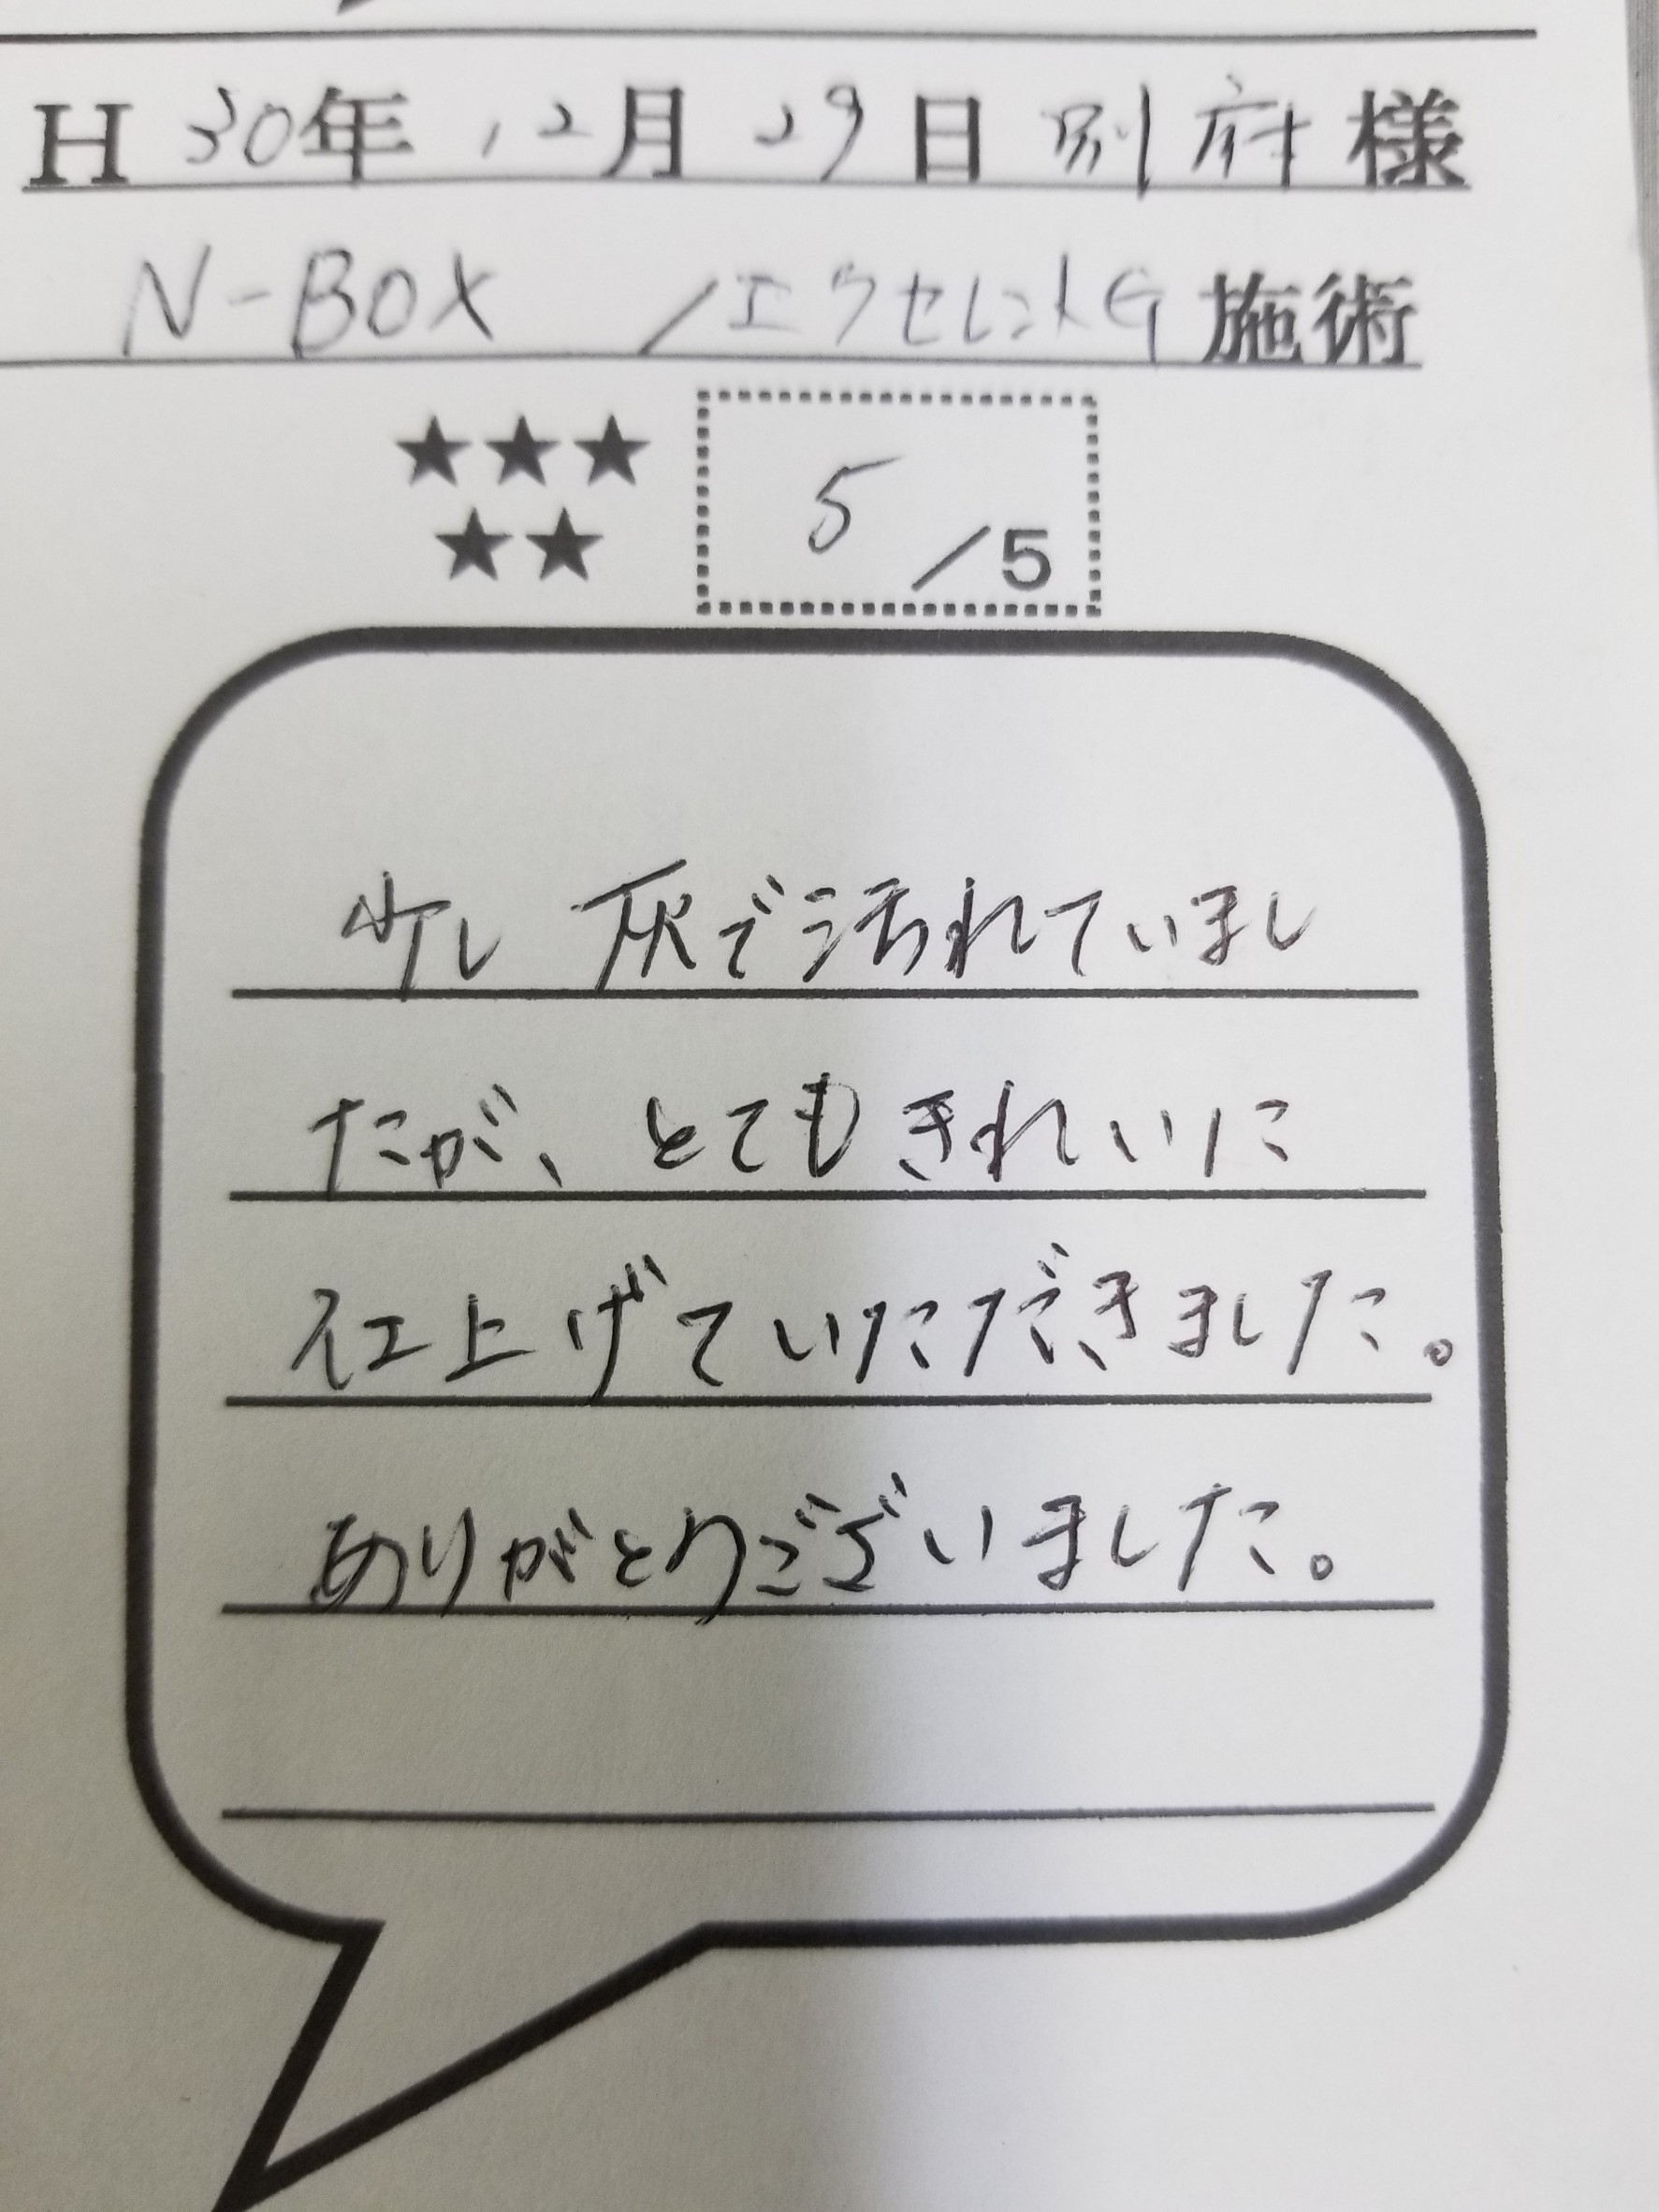 H 30年 12月 29日 別府 様
N-BOX /エクセレントG 施術
★★★
★★
5/5
少し 灰で汚れていまし
たが、とてもきれいに
仕上げていただきました。
ありがとうございました。